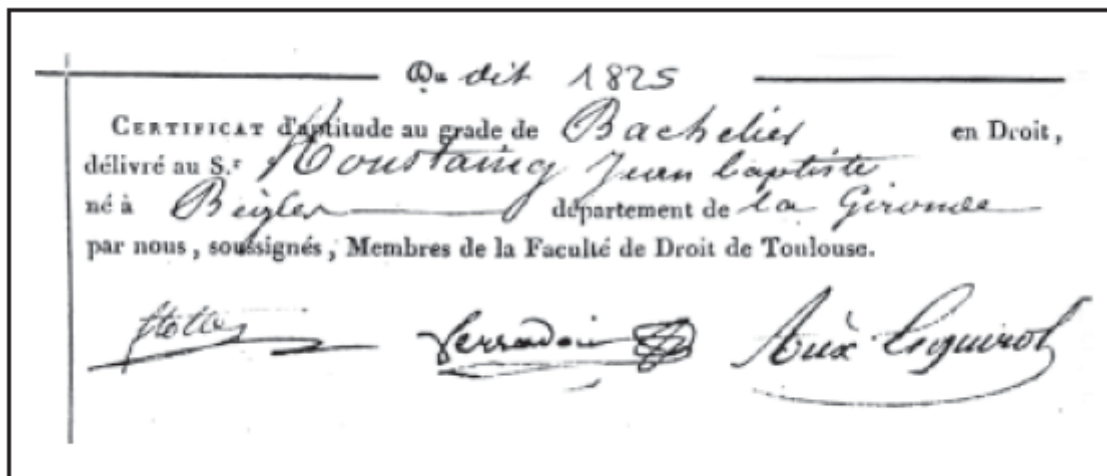 Du dit 1825
CERTIFICAT d'aptitude au grade de Bachelier en Droit,
délivré au S.r Roustaing Jean baptiste
né à Bègles département de la Gironde
par nous, soussignés, Membres de la Faculté de Droit de Toulouse.